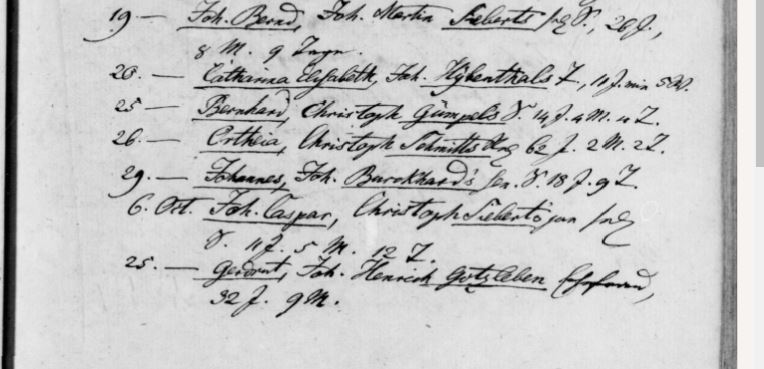 19 — Joh. Bernd, Joh. Martin Sieberts S., 26 J.,
8 M. 9 Tage.
20. — Catharina Elisabeth, Joh. Hybenthals T, 10 J. min 5 W.
25 — Bernhard, Christoph Gümpels S. 14 J. 4 M. 4 T.
26. — Orthia, Christoph Schmitts 62 J. 2 M. 2 T.
29. — Johannes, Joh. Burckhard's sen. S. 18 J. 9 T.
6. Oct. Joh. Caspar, Christoph Sieberts jun
S. 11 J. 5 M. 12 T.
25. — Gerdrut, Joh. Henrich Gotzleben Ehefrau,
32 J. 9 M.